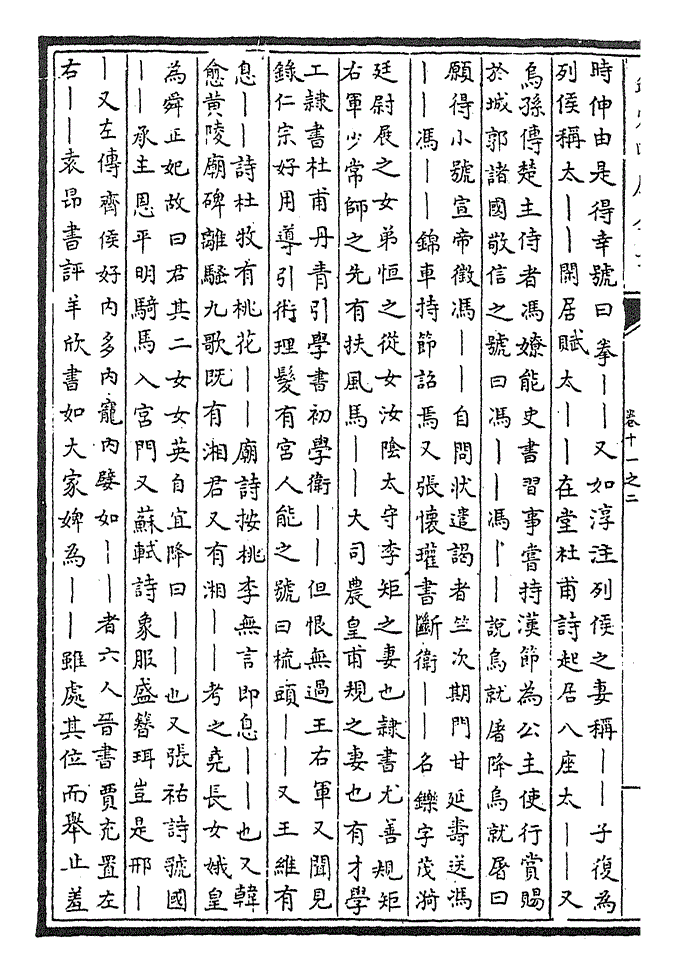 卷十一之二
時伸由是得幸號曰拳丨丨又如淳注列侯之妻稱丨丨子復為
列侯稱太丨丨閑居賦太丨丨在堂杜甫詩起居八座太丨丨又
烏孫傳楚主侍者馮嫽能史書習事嘗持漢節為公主使行賞賜
於城郭諸國敬信之號曰馮丨丨馮丨丨說烏就屠降烏就屠曰
願得小號宣帝徵馮丨丨自問狀遣謁者竺次期門甘延壽送馮
丨丨馮丨丨錦車持節詔焉又張懷瓘書斷衛丨丨名鑠字茂漪
廷尉展之女弟恒之從女汝陰太守李矩之妻也隸書尤善規矩
右軍少常師之先有扶風馬丨丨大司農皇甫規之妻也有才學
工隸書杜甫丹青引學書初學衛丨丨但恨無過王右軍又聞見
錄仁宗好用導引術理髮有宮人能之號曰梳頭丨丨又王維有
息丨丨詩杜牧有桃花丨丨廟詩按桃李無言即息丨丨也又韓
愈黃陵廟碑離騷九歌既有湘君又有湘丨丨考之堯長女娥皇
為舜正妃故曰君其二女女英自宜降曰丨丨也又張祜詩虢國
丨丨承主恩平明騎馬入宮門又蘇軾詩象服盛簪珥豈是邢丨
丨又左傳齊侯好內多內寵內嬖如丨丨者六人晉書賈充置左
右丨丨袁昂書評羊欣書如大家婢為丨丨雖處其位而舉止羞